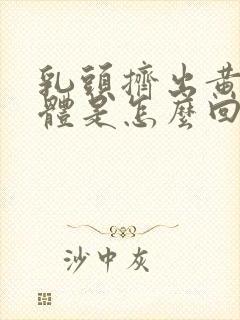 乳頭擠出黃
體是怎麼回
沙中灰